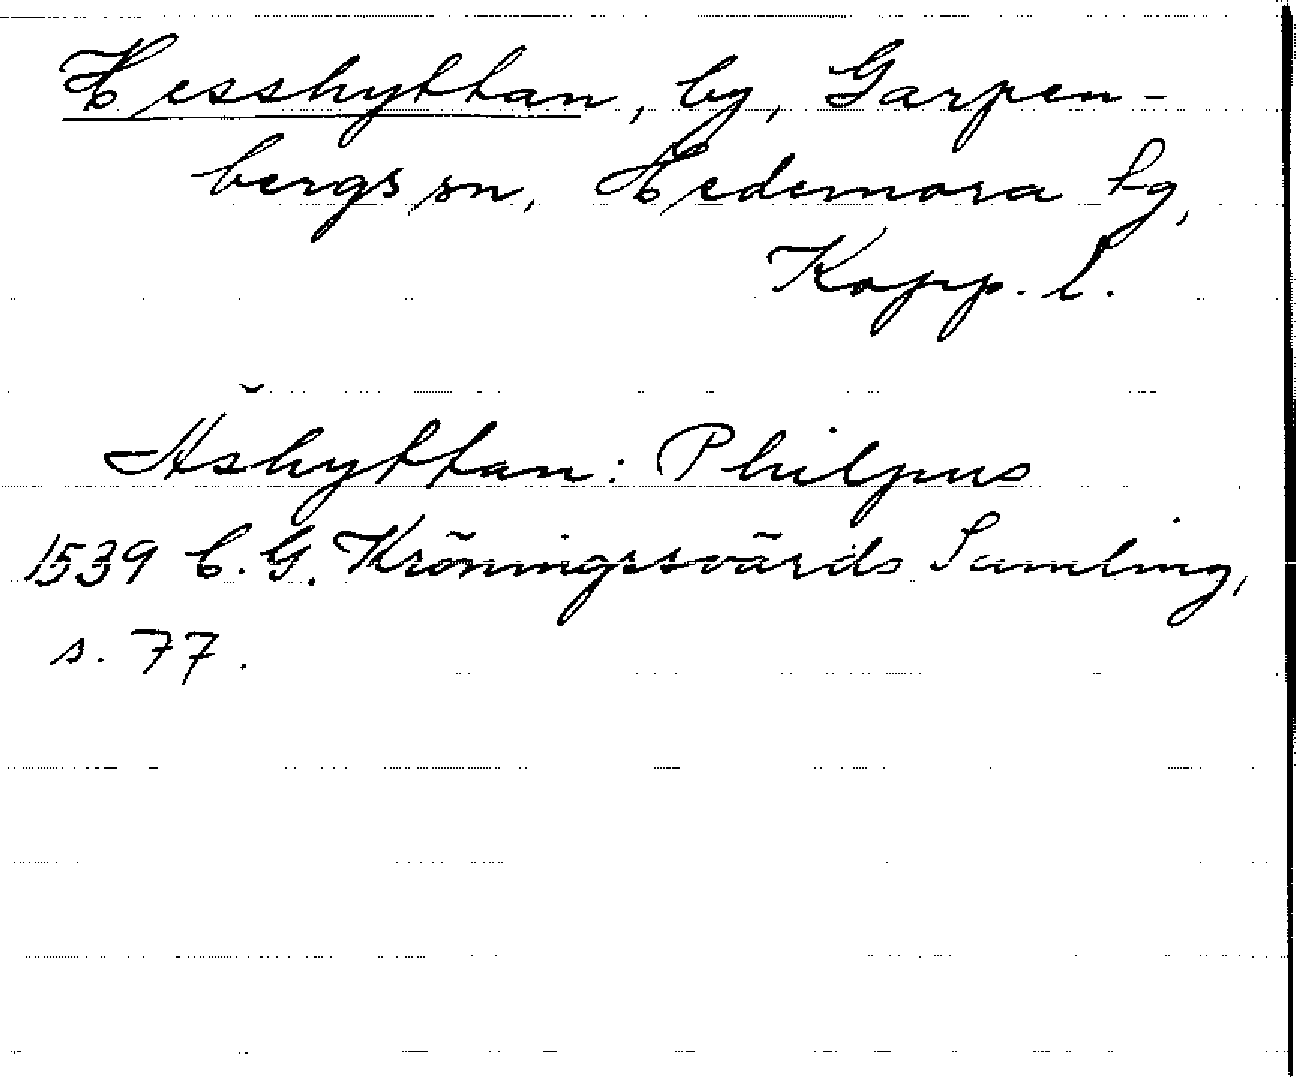 Hesshyttan, by, Garpen-
bergs sn, Hedemora tg,
Kopp. l.
Ashyttan: Philpus
1539 C. G. Kröningssvärds Samling,
s. 77.